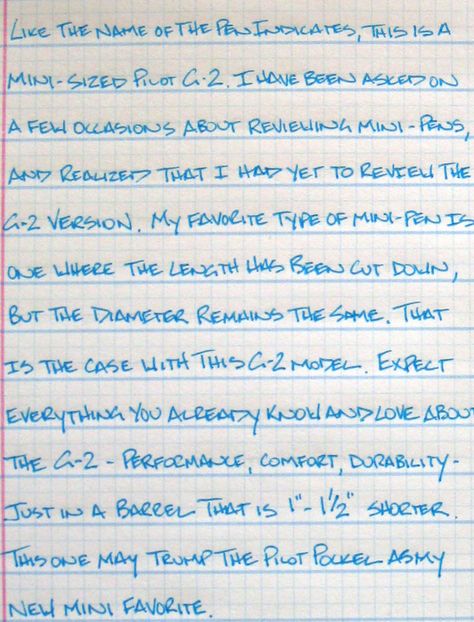 LIKE THE NAME OF THE PEN INDICATES, THIS IS A
MINI-SIZED PILOT G-2. I HAVE BEEN ASKED ON
A FEW OCCASIONS ABOUT REVIEWING MINI-PENS,
AND REALIZED THAT I HAD YET TO REVIEW THE
G-2 VERSION. MY FAVORITE TYPE OF MINI-PEN IS
ONE WHERE THE LENGTH HAS BEEN CUT DOWN,
BUT THE DIAMETER REMAINS THE SAME. THAT
IS THE CASE WITH THIS G-2 MODEL. EXPECT
EVERYTHING YOU ALREADY KNOW AND LOVE ABOUT
THE G-2 - PERFORMANCE, COMFORT, DURABILITY -
JUST IN A BARREL THAT IS 1"- 1½" SHORTER.
THIS ONE MAY TRUMP THE PILOT POCKEL AS MY
NEW MINI FAVORITE.